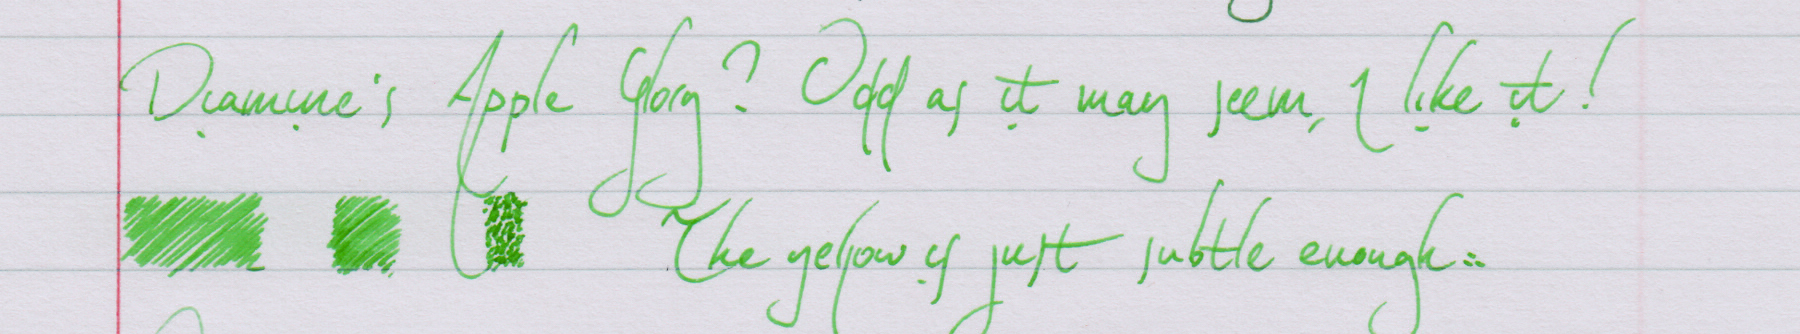 Diamine's Apple Glory? Odd as it may seem, I like it!
The yellow is just subtle enough...